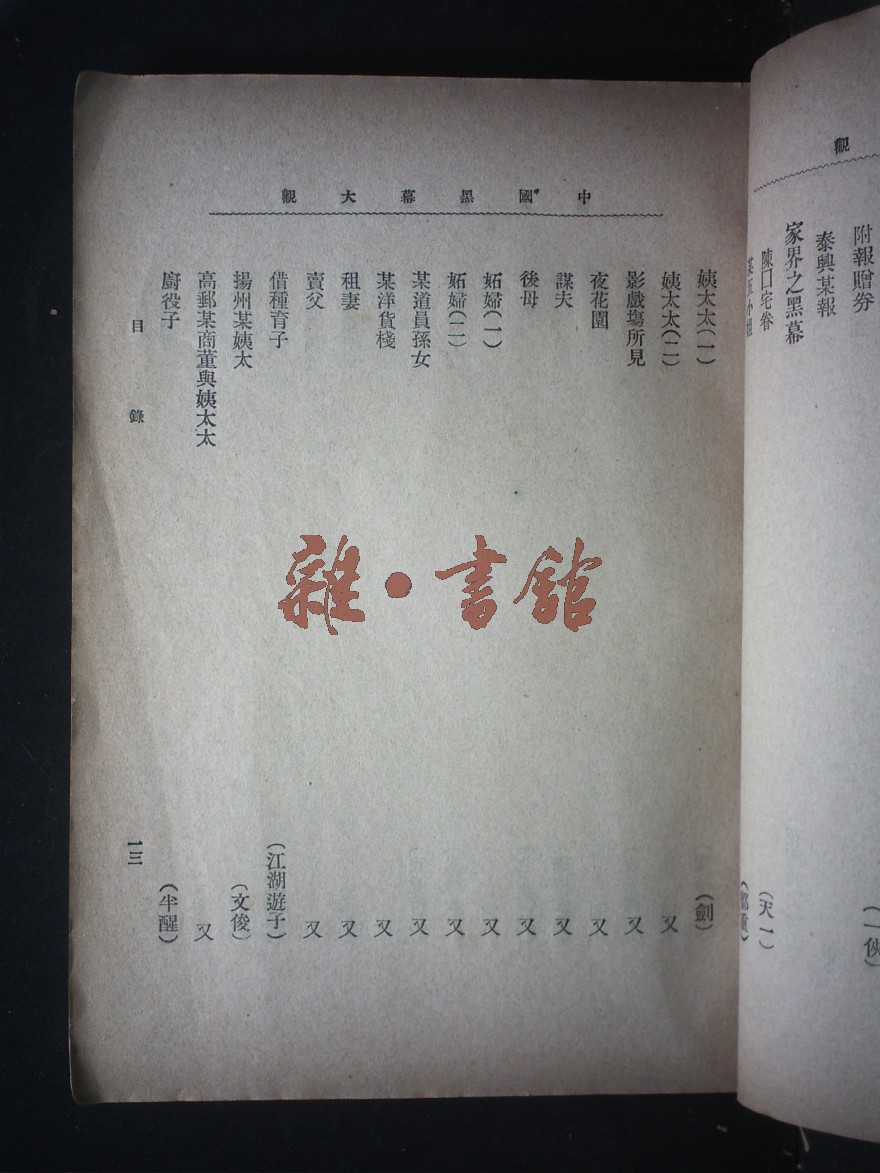 觀
附報贈券 (一俠)
泰興某報
家界之黑幕
陳囗宅眷 (天一)
中國黑幕大觀
姨太太(一) (劍)
姨太太(二) 又
影戲塲所見 又
夜花園 又
謀夫 又
後母 又
妬婦(一) 又
妬婦(二) 又
某道員孫女 又
某洋貨棧 又
租妻 又
賣父 又
借種育子 (江湖遊子)
揚州某姨太 (文俊)
高郵某商董與姨太太 又
廚役子 (半醒)
目錄 一三
雜·書館